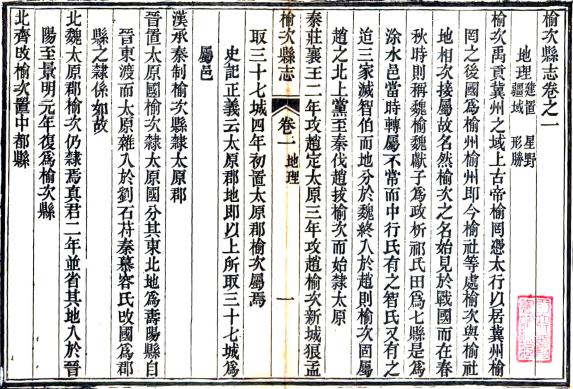 榆次縣志卷之一
地理 建置 星野
疆域 形勝
榆次禹貢冀州之域上古帝榆罔憑太行以居冀州榆
罔之後國為榆州榆州即今榆社等處榆次與榆社
地相次接屬故名然榆次之名始見於戰國而在春
秋時則稱魏榆魏獻子為政析祁氏田為七縣是為
涂水邑當時轉屬不常而中行氏有之智氏又有之
迨三家滅智伯而地分於魏終入於趙則榆次固屬
趙之北上黨至秦伐趙拔榆次而始隸太原
榆次縣志 卷一 地理 一
秦莊襄王二年攻趙定太原三年攻趙榆次新城狼孟
取三十七城四年初置太原郡榆次屬焉
史記正義云太原郡地即以上所取三十七城為
屬邑
漢承秦制榆次縣隸太原郡
晉置太原國榆次隸太原國分其東北地為壽陽縣自
晉東渡而太原雜入於劉石苻秦慕容氏改國為郡
縣之隸係如故
北魏太原郡榆次仍隸焉真君二年並省其地入於晉
陽至景明元年復為榆次縣
北齊改榆次置中都縣